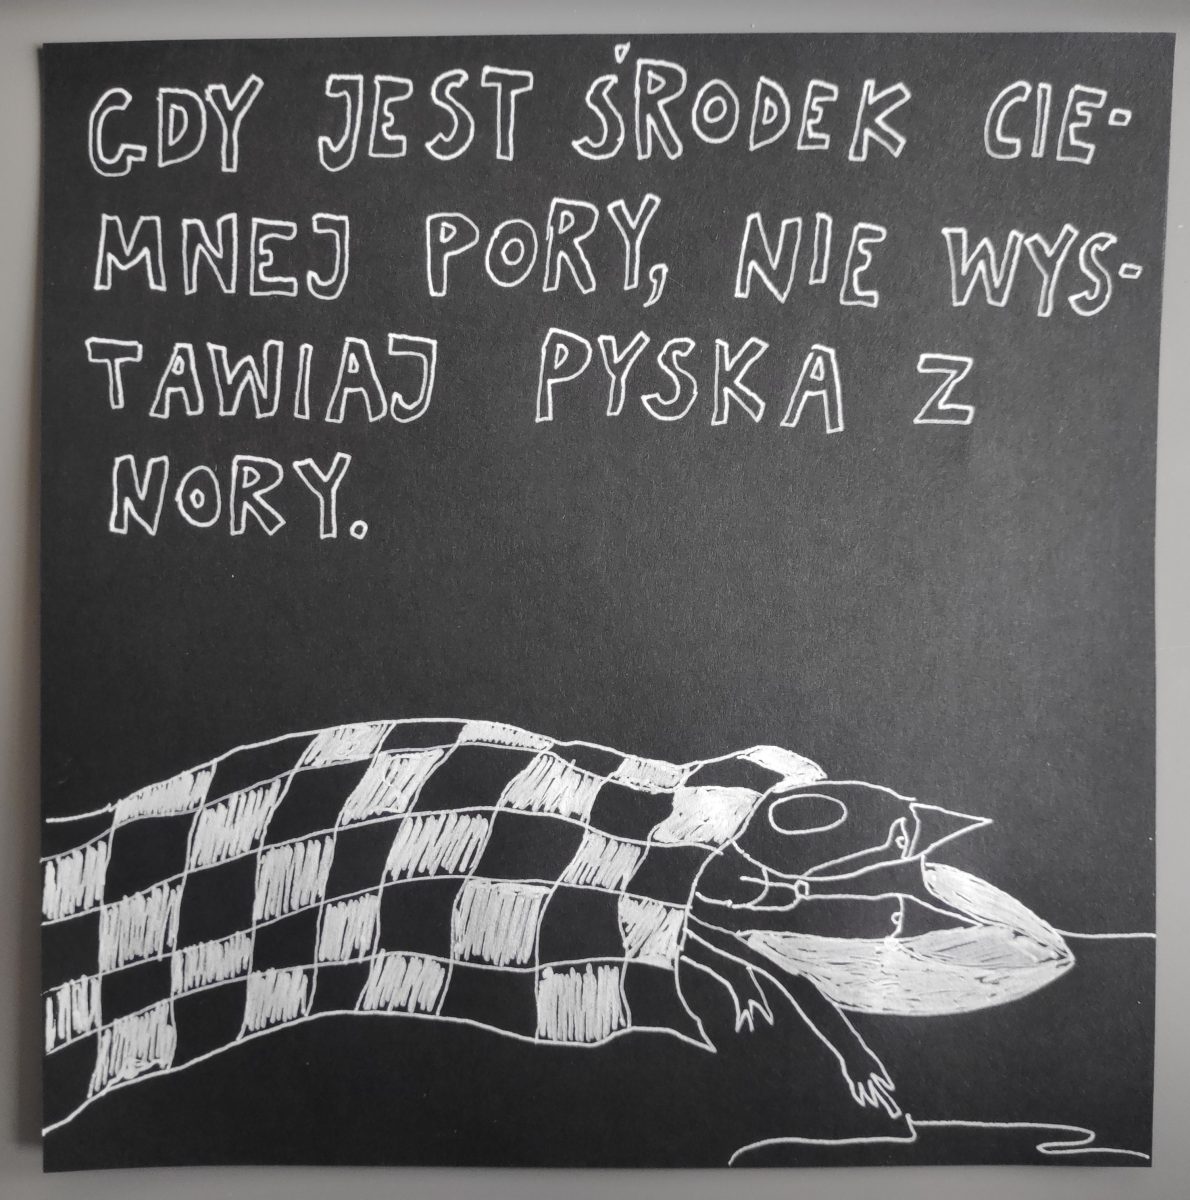 GDY JEST ŚRODEK CIE-
MNEJ PORY, NIE WYS-
TAWIAJ PYSKA Z
NORY.